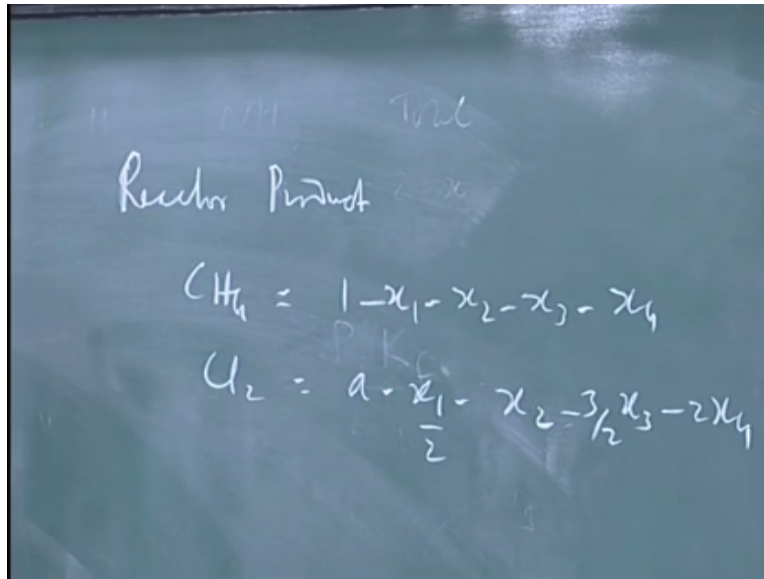 Total
Reactor Product
CH₄ = 1 - x₁ - x₂ - x₃ - x₄
Cl₂ = a - x₁/2 - x₂ - 3/2 x₃ - 2x₄